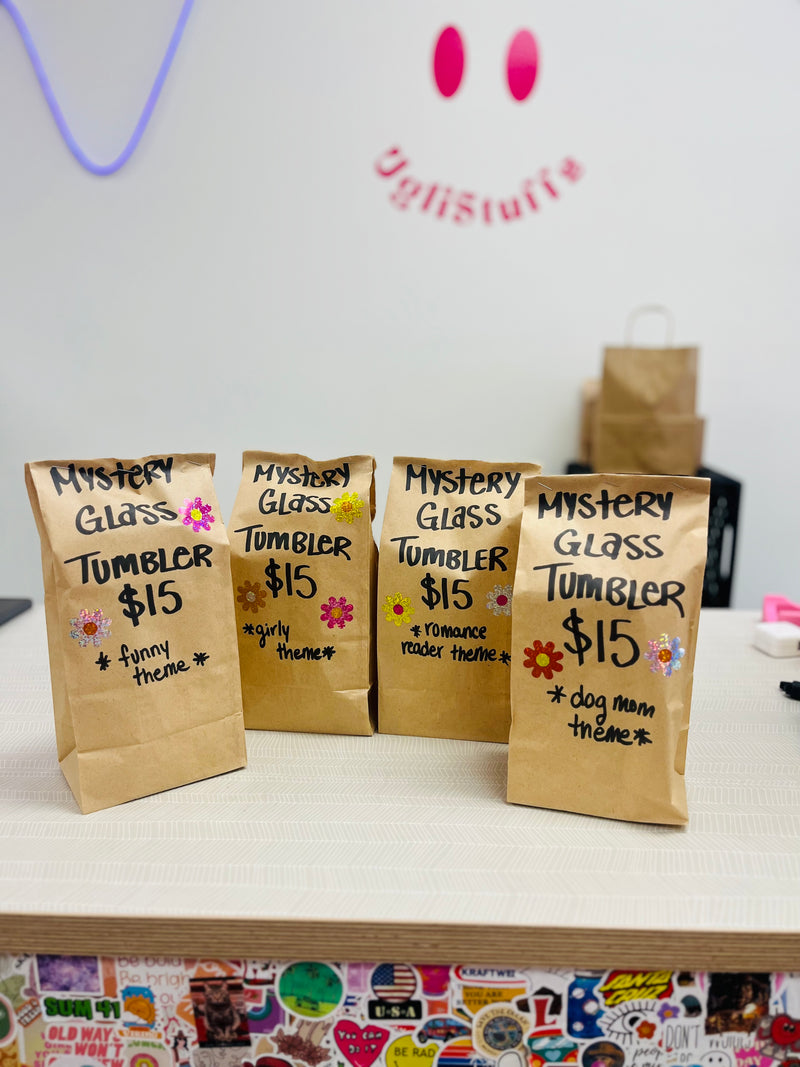 UgliStuffs
Mystery
Glass
Tumbler
$15
* funny
theme *
Mystery
Glass
Tumbler
$15
*girly
theme*
Mystery
Glass
Tumbler
$15
*romance
reader theme*
Mystery
Glass
Tumbler
$15
*dog mom
theme*
Be bold
Be brigh
SUM 41
OLD WAYS
WON'T
U-S-A
You can
do it
BE RAD
KRAFTWE
YOU ARE
SANTA
CRUZ
DON'T